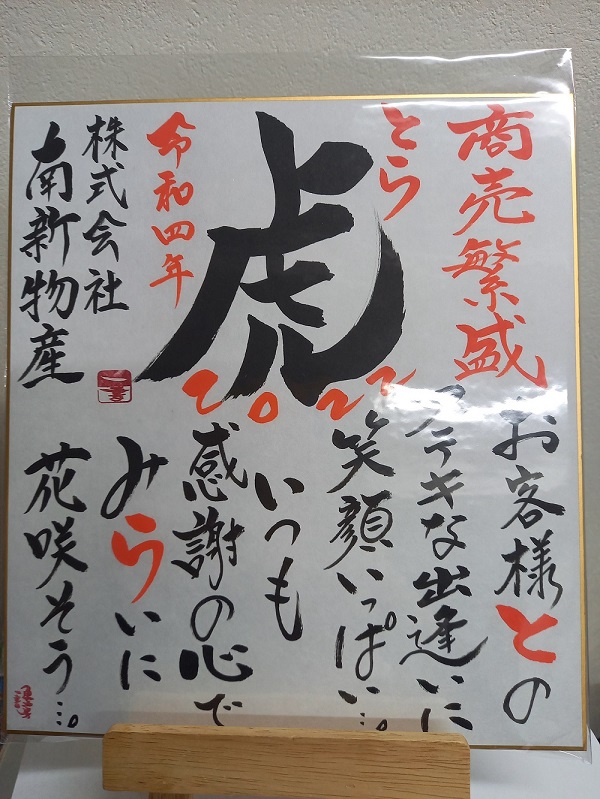 商売繁盛
とら
虎
2022
令和四年
株式会社
南新物産
お客様との
ステキな出逢いに
笑顔いっぱい…。
いつも
感謝の心で
みらいに
花咲そう…。